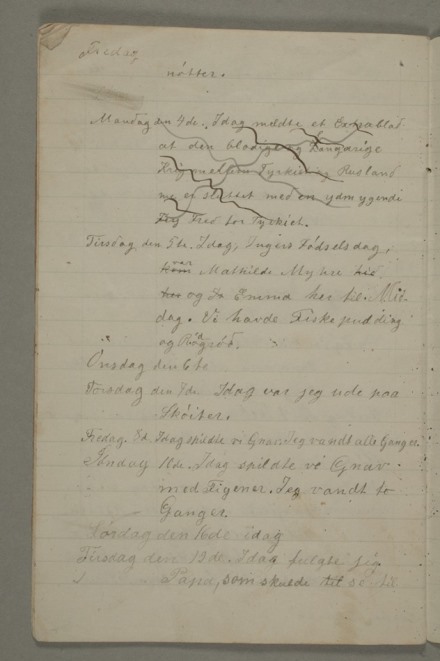 Fredag,
nötter.
Mandag den 4de. Idag mældte et Extrablad
at den blodige og langarige
Krig mellem Tyrkiet og Rusland
er sluttet med en ydmygende
Fred for Tyrkiet.
Tirsdag, den 5te. Idag, Ingers Födselsdag,
kom var Mathilde Myhre hid
her og Emma her til Mid
dag. Vi havde Fiskepudding
og Rögröd.
Onsdag den 6te
Torsdag den 7de. Idag var jeg ude paa
Sköiter.
Fredag. 8d. Idag spildte vi Gnav. Jeg vandt alle Ganger.
11te. Idag spildte vi Gnav
med Figener. Jeg vandt to
Ganger.
Lördag den 16de idag
Tirsdag den 19de. Idag fulgte jeg
Papa, som skulde til se til